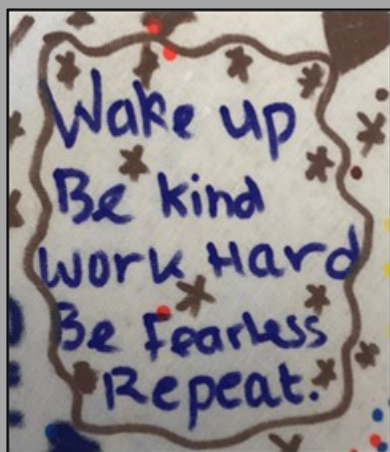 Wake up
Be kind
Work Hard
Be Fearless
Repeat.